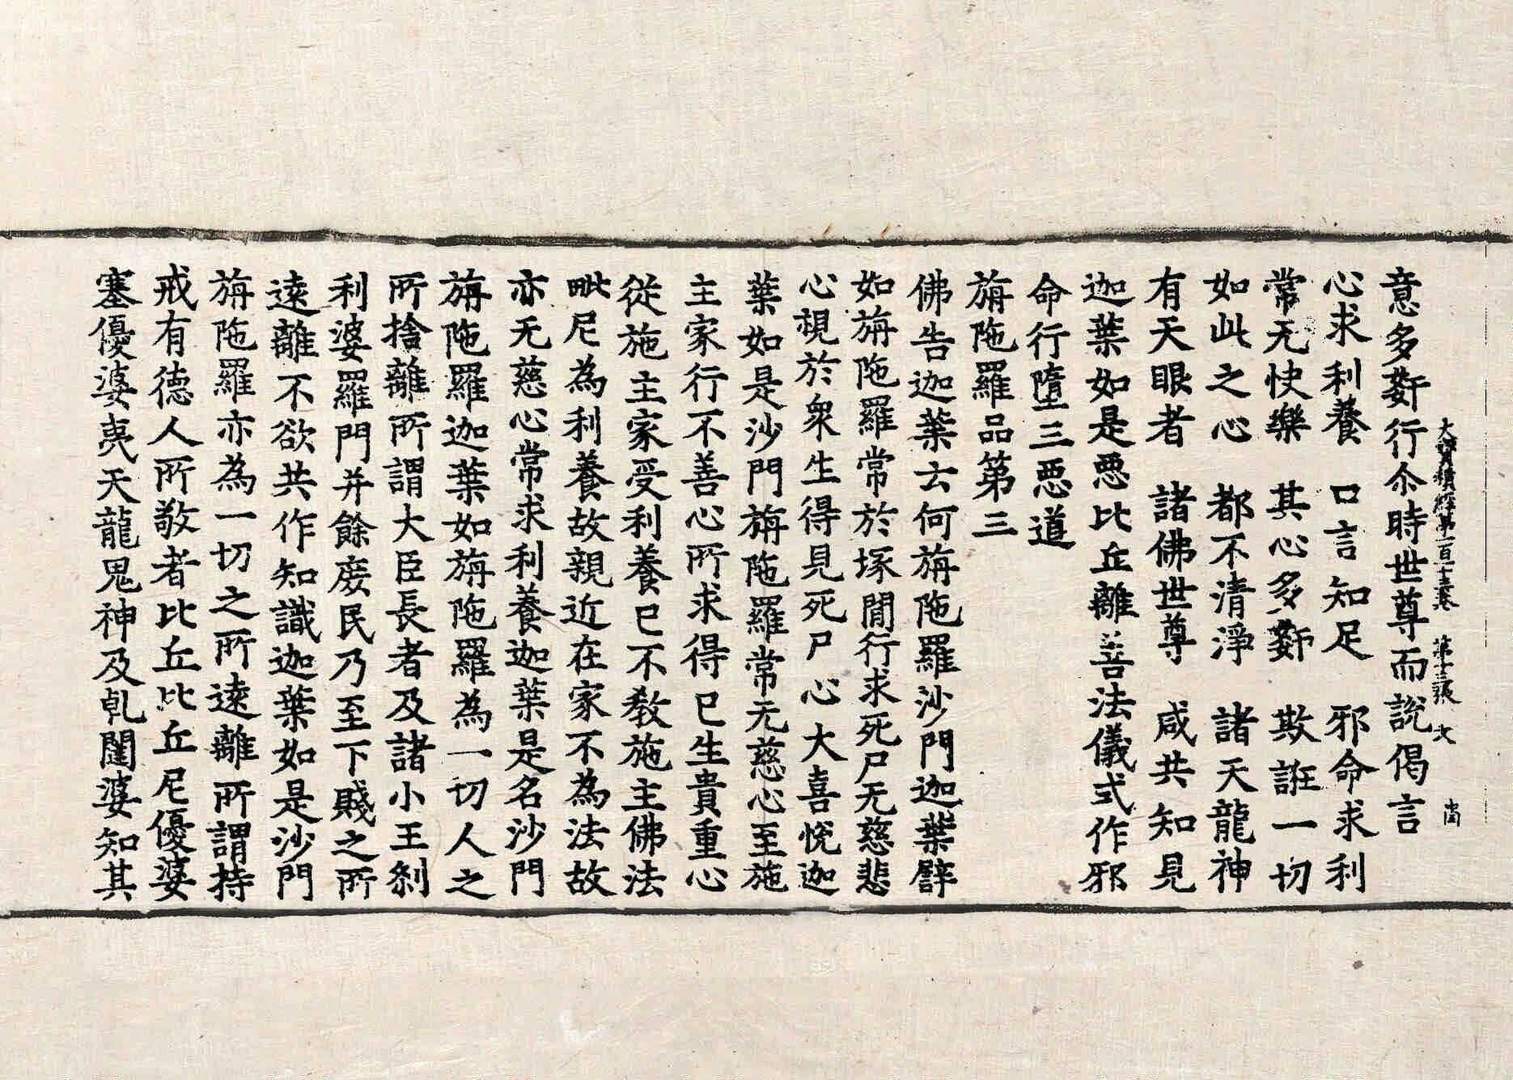 大寶積經第一百十三卷　第十三張　文
意多姧行尒時世尊而說偈言
心求利養　口言知足　邪命求利
常无快樂　其心多姧　欺誑一切
如此之心　都不清淨　諸天龍神
有天眼者　諸佛世尊　咸共知見
迦葉如是惡比丘離善法儀式作邪
命行墮三惡道
旃陁羅品第三
佛告迦葉云何旃陁羅沙門迦葉譬
如旃陁羅常於塚閒行求死尸无慈悲
心視於衆生得見死尸心大喜悅迦
葉如是沙門旃陁羅常无慈心至施
主家行不善心所求得已生貴重心
從施主家受利養已不教施主佛法
毗尼為利養故親近在家不為法故
亦无慈心常求利養迦葉是名沙門
旃陁羅迦葉如旃陁羅為一切人之
所捨離所謂大臣長者及諸小王剎
利婆羅門并餘庶民乃至下賤之所
遠離不欲共作知識迦葉如是沙門
旃陁羅亦為一切之所遠離所謂持
戒有德人所敬者比丘比丘尼優婆
塞優婆夷天龍鬼神及乹闥婆知其